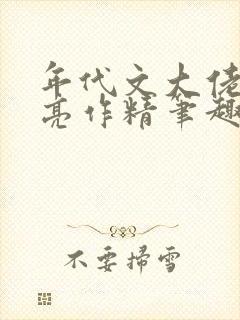 年代文大佬
亮作精笔趣
不要掃雪